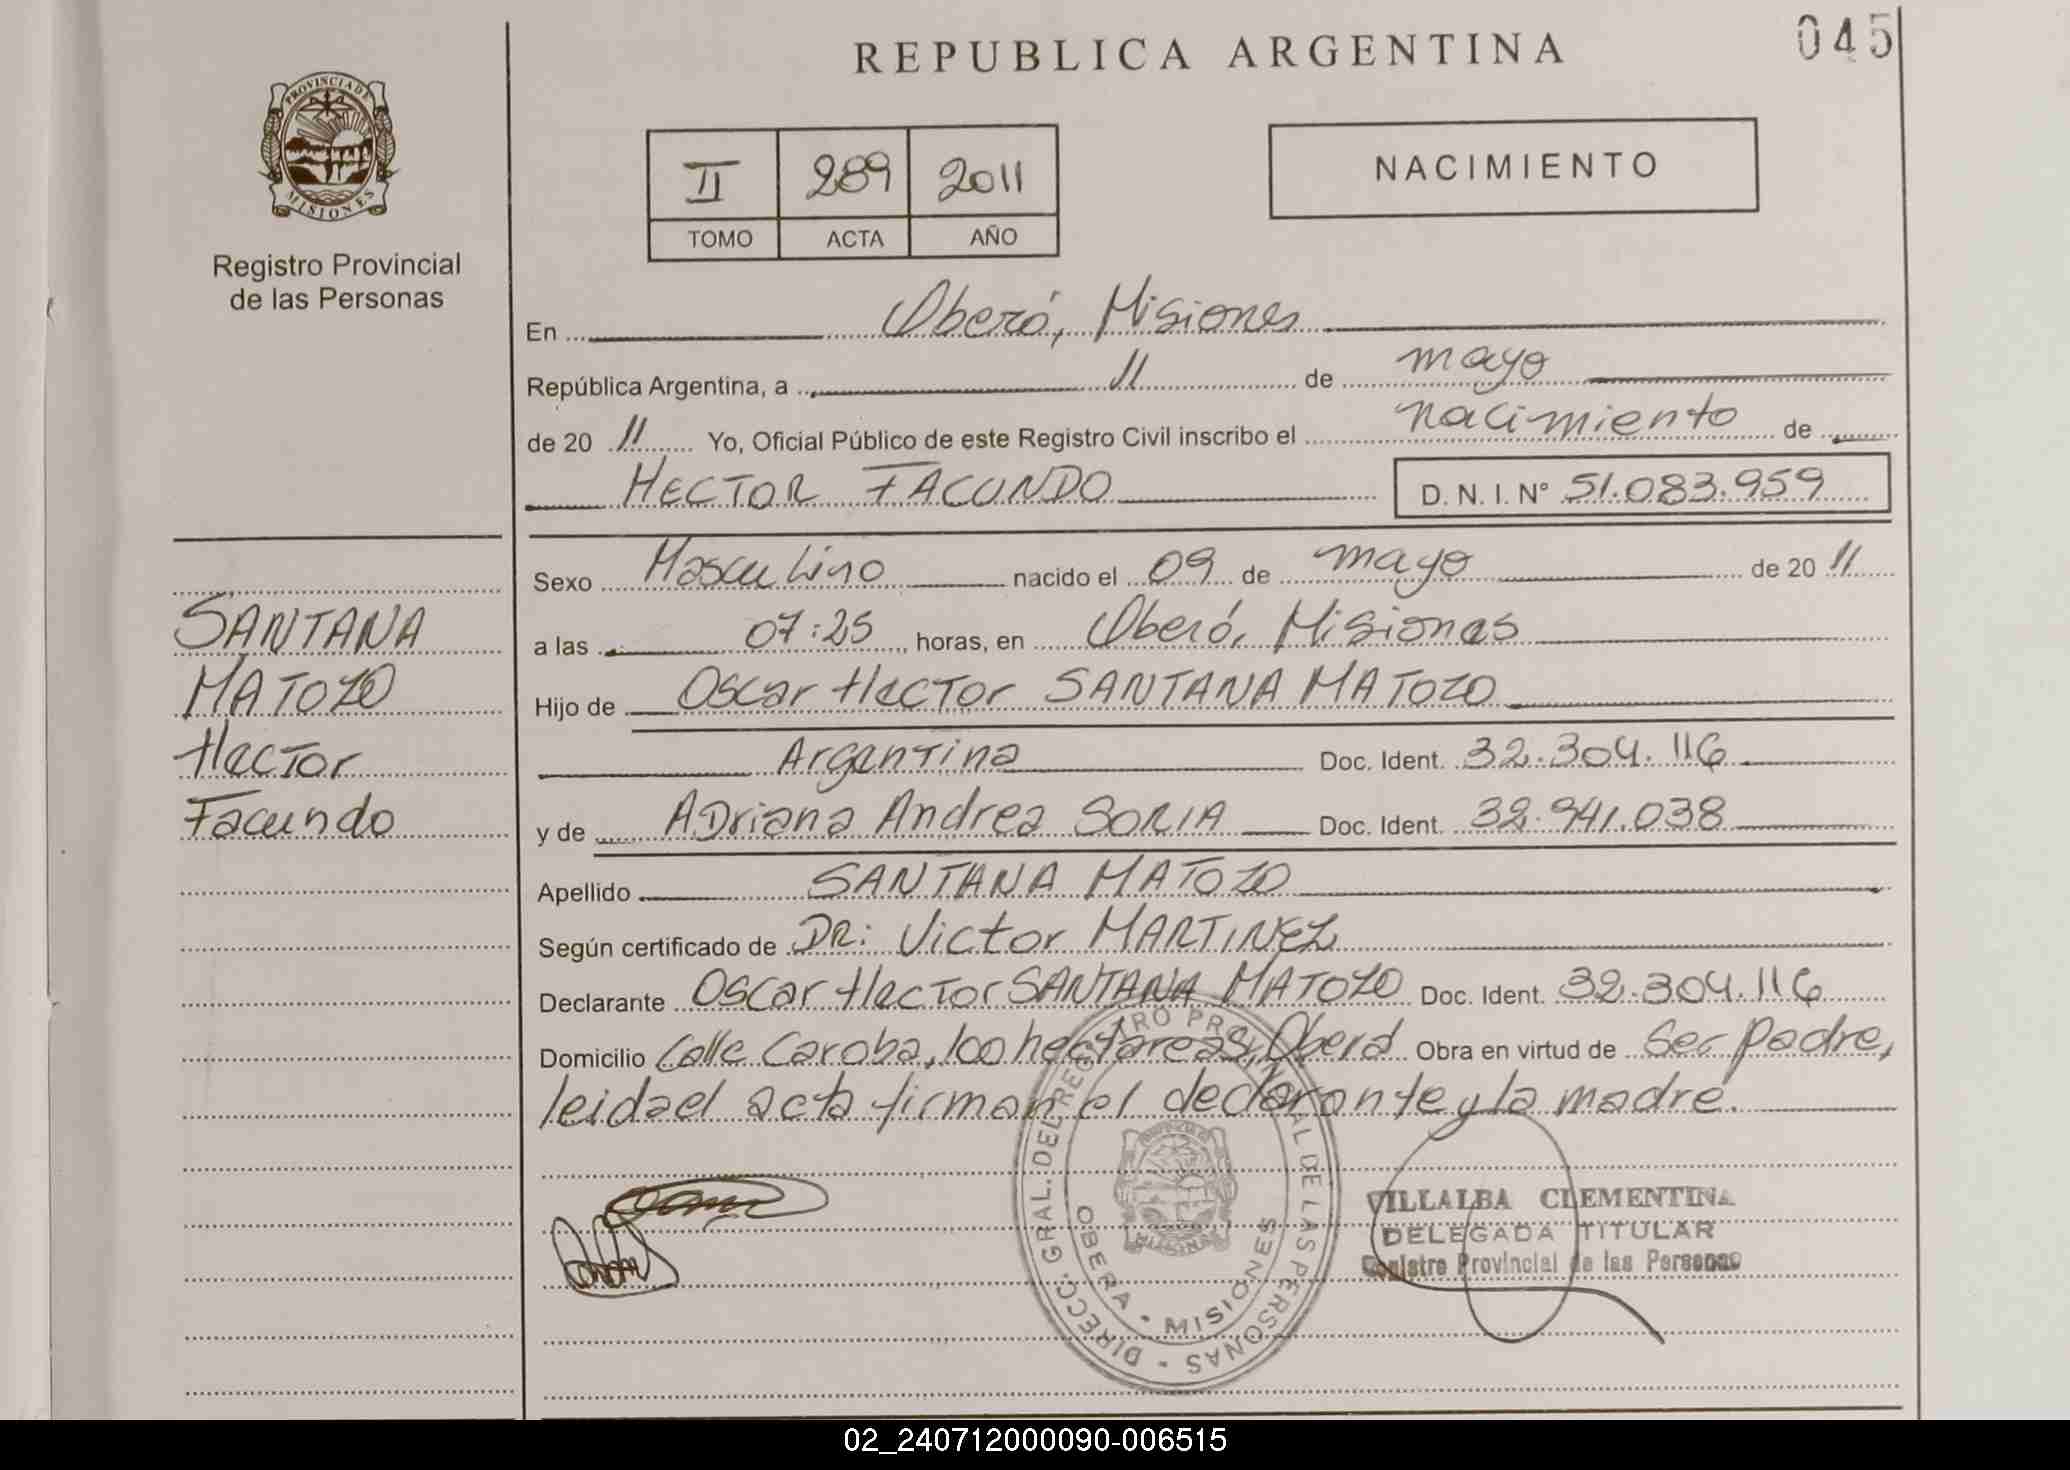 045
REPUBLICA ARGENTINA
PROVINCIA DE
MISIONES
Registro Provincial
de las Personas
II 289 2011
TOMO ACTA AÑO
NACIMIENTO
En Oberá, Misiones
República Argentina, a 11 de mayo
de 20 11 Yo, Oficial Público de este Registro Civil inscribo el nacimiento de
HECTOR FACUNDO D. N. I. N° 51.083.959
SANTANA
MATOZO
Hector
Facundo
Sexo Masculino nacido el 09 de mayo de 20 11
a las 07:25 horas, en Oberá, Misiones
Hijo de Oscar Hector SANTANA MATOZO
Argentina Doc. Ident. 32.304.116
y de ADriana Andrea SORIA Doc. Ident. 32.941.038
Apellido SANTANA MATOZO
Según certificado de DR: Victor MARTINEZ
Declarante Oscar Hector SANTANA MATOZO Doc. Ident. 32.304.116
Domicilio Calle Caroba, 100 hectareas, Oberá Obra en virtud de Ser padre,
leida el acta firman el declarante y la madre.
DIRECC. GRAL. DEL REGISTRO PROVINCIAL DE LAS PERSONAS
OBERA - MISIONES
VILLALBA CLEMENTINA
DELEGADA TITULAR
Registro Provincial de las Personas
02_240712000090-006515